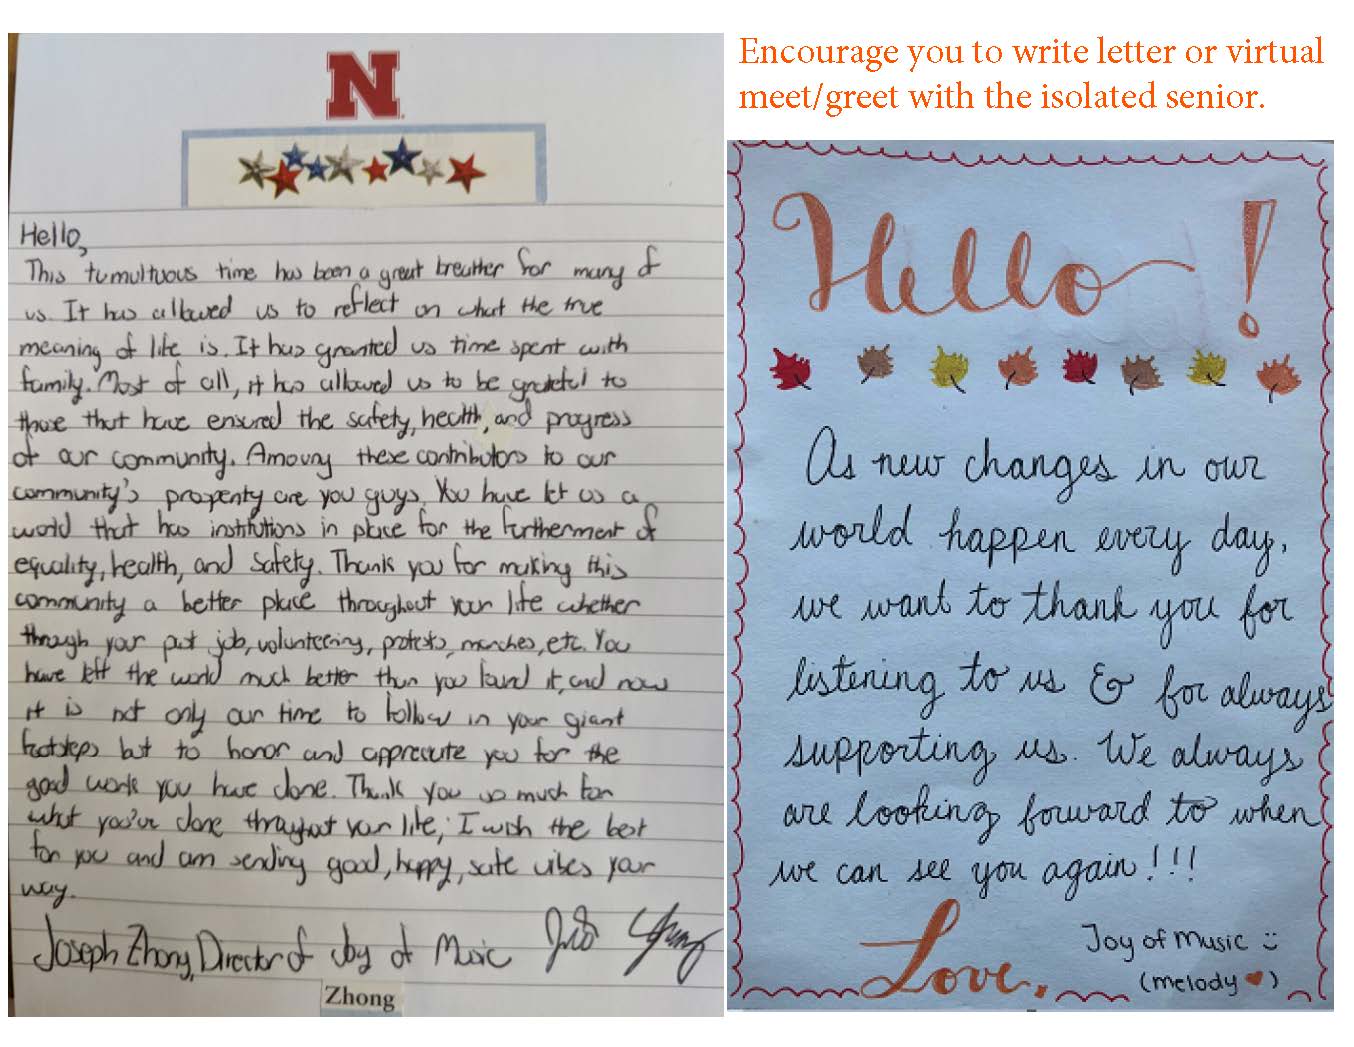 N
Hello,
This tumultuous time has been a great breather for many of
us. It has allowed us to reflect on what the true
meaning of life is. It has granted us time spent with
family. Most of all, it has allowed us to be grateful to
those that have ensured the safety, health, and progress
of our community. Among these contributors to our
community's prosperity are you guys. You have let us a
world that has institutions in place for the furtherment of
equality, health, and safety. Thank you for making this
community a better place throughout your life whether
through your past job, volunteering, protests, marches, etc. You
have left the world much better than you found it, and now
it is not only our time to follow in your giant
footsteps but to honor and appreciate you for the
good work you have done. Thank you so much for
what you've done throughout your life; I wish the best
for you and am sending good, happy, safe vibes your
way.
Joseph Zhong, Director of Joy of Music
Zhong
Encourage you to write letter or virtual
meet/greet with the isolated senior.
Hello!
As new changes in our
world happen every day,
we want to thank you for
listening to us & for always
supporting us. We always
are looking forward to when
we can see you again!!!
Love,
Joy of Music :)
(melody ♥)